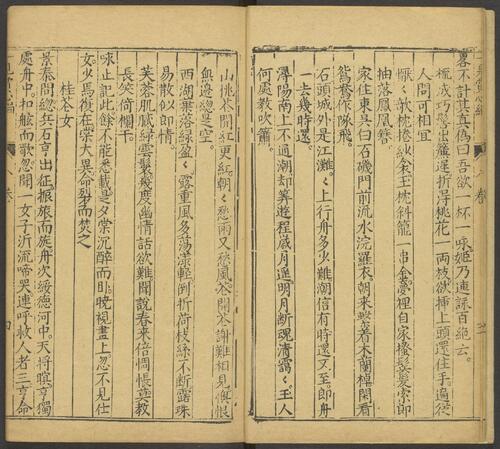 畧不計其真偽曰吾欲一杯一咏姬乃連詠百絶云
梳成巧髻出簾遲折得桃花一兩枝欲挿上頭還住手遍從
人間可相宜
懨〻欹枕捲紗衾玉枕斜籠一串金夢裡自家搔髩髪索郎
抽落鳳凰簪
家住東吳白石磯門前流水浣羅衣朝來繫着木蘭棹閑看
鴛鴦作隊飛
石頭城外是江灘〻上行舟多少難潮信有時還又至郎舟
一去幾時還
潯陽南上不通潮却筭遊程歲月遥明月斷魂清靄〻玉人
何處教吹簫
山桃花開紅更紅朝〻愁雨又愁風花開花謝難相見懊恨
無邊總是空
西湖葉落緑盈〻露重風多蕩漾輕倒折荷枝絲不斷露珠
易散似郎情
芙蓉肌膩緑雲鬟幾度幽情話欲難聞說春來倍惆悵莫教
長笑倚欄干
咏止記此餘不能悉載是夕棠沉醉而卧晚視畫上忽不見仕
女少焉復在棠大異命裂而焚之
桂花女
景泰間總兵石亨出征振旅而旋舟次綏德河中天將瞑亨獨
處舟中扣舷而歌忽聞一女子泝流啼哭連呼救人者三亨命
八卷
四